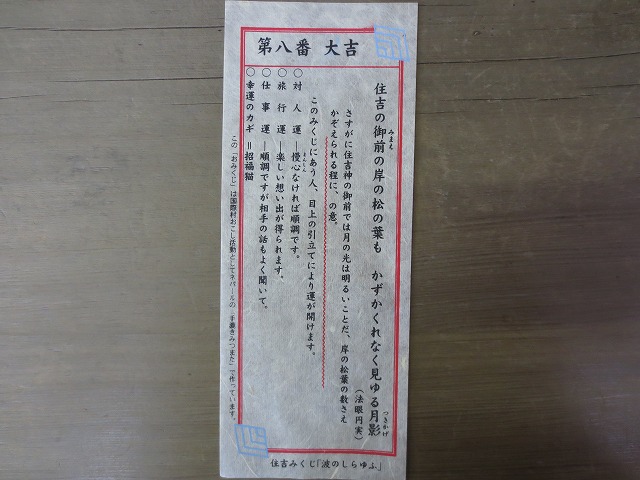 第八番 大吉
住吉の御前の岸の松の葉も かずかくれなく見ゆる月影
みまえ
つきかげ
(法眼円実)
さすがに住吉神の御前では月の光は明るいことだ、岸の松葉の数さえ
かぞえられる程に、の意。
このみくじにあう人、目上の引立てにより運が開けます。
○対人運―慢心なければ順調です。
まんしん
○旅行運―楽しい想い出が得られます、
○仕事運―順調ですが相手の話もよく聞いて。
○幸運のカギ=招福猫
この「おみくじ」は国際村おこし活動としてネパールの「手漉きみつまた」で作っています。
住吉みくじ「波のしらゆふ」